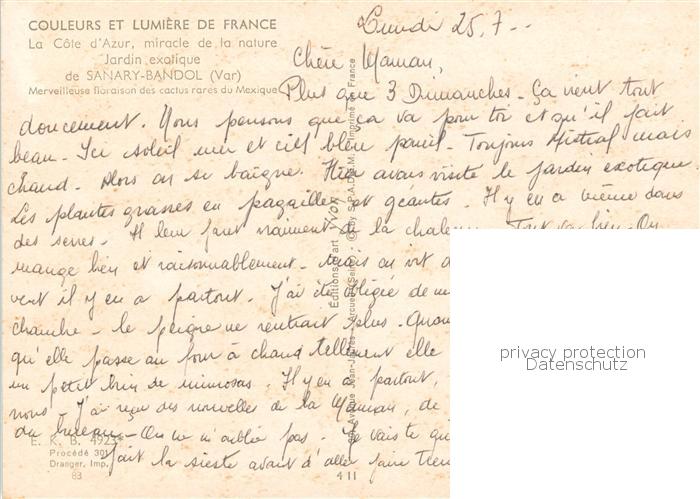 COULEURS ET LUMIÈRE DE FRANCE
La Côte d'Azur, miracle de la nature
Jardin exotique
de SANARY-BANDOL (Var)
Merveilleuse floraison des cactus rares du Mexique
Lundi 25.7..
Chère Maman,
Plus que 3 Dimanches - Ça vient tout
doucement. Nous pensons que ça va pour toi et qu'il fait
beau - Ici soleil mer et ciel bleu pareil - Toujours Mistral mais
chaud - Alors on se baigne. Hier avons visité le jardin exotique.
Les plantes grasses en pagaille et géantes. Il y en a même dans
des serres - Il leur faut vraiment de la Tout va bien - On
mange bien et raisonnablement - mais on vit
vent il y en a partout. J'ai été obligée de
- le peigne ne rentrait plus -
qu'elle passe au four à chaud tellement elle
un petit brin de mimosas. Il y en a partout,
nous - J'ai reçu des nouvelles de la Maman, de
du bureau - On ne m'oublie pas. Je vais te
fait la sieste avant d'aller faire
Éditions d'art YVON
Imprimé en France
Avenue Jean-Jaurès - Arcueil (Seine)
E. K. B. 4923
Procédé 301
Draeger, Imp.
83
4 11
privacy protection
Datenschutz